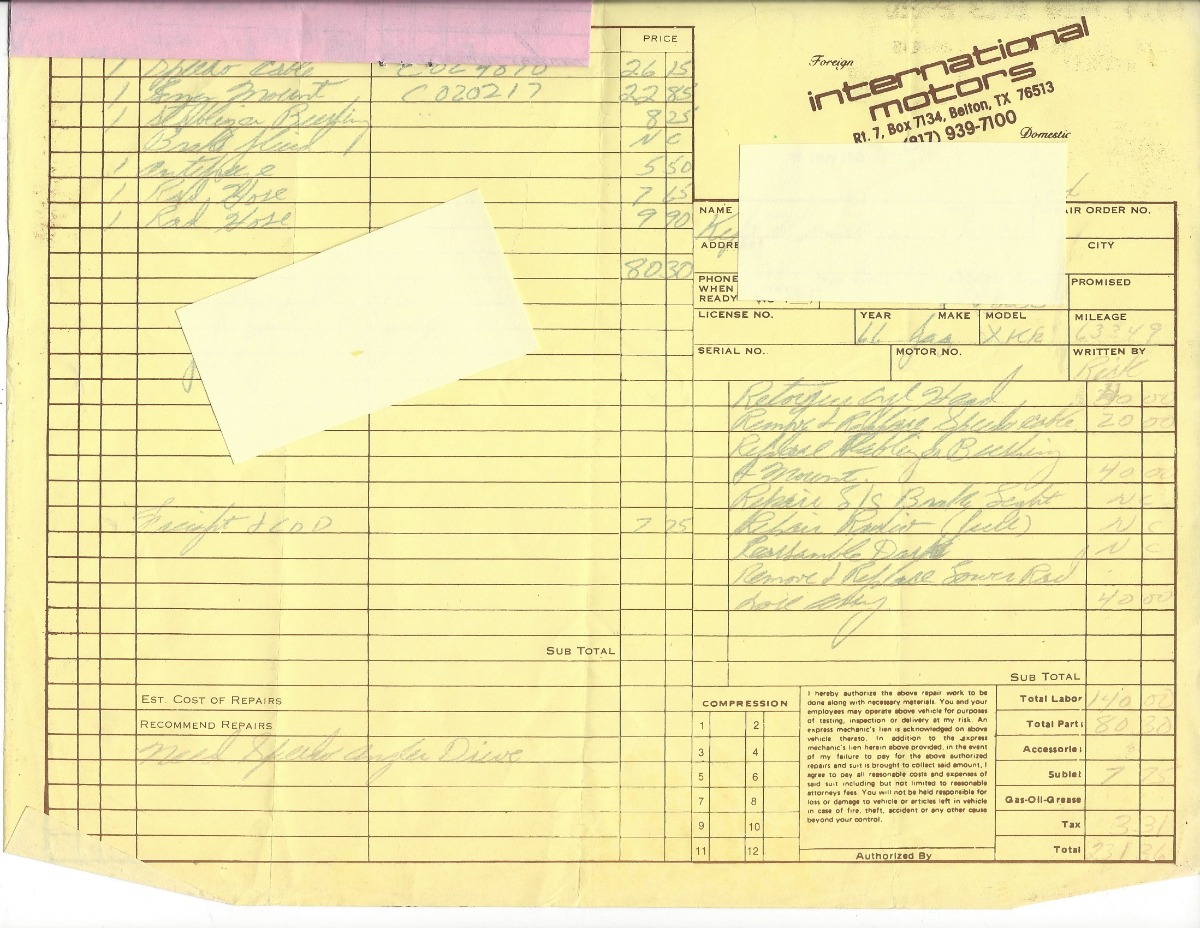 PRICE
1 Speedo Cable 26 15
1 Mount C020217 22 85
1 Stablizer Bushing 8 25
Brake Fluid N C
1 5 50
1 Rad Hose 7 65
1 Rad Hose 9 90
80 30
Freight & COD 7 75
SUB TOTAL
EST. COST OF REPAIRS
RECOMMEND REPAIRS
Need Speedo angle Drive
Foreign
international
motors
Rt. 7, Box 7134, Belton, TX 76513
(817) 939-7100
Domestic
NAME
AIR ORDER NO.
ADDRE
CITY
PHONE
WHEN
READY
PROMISED
LICENSE NO.
YEAR MAKE MODEL MILEAGE
66 Jag XKE 63349
SERIAL NO.
MOTOR NO.
WRITTEN BY
Rick
Retorque Cyl Head 40 00
Remove & Replace Speedo cable 20 00
Replace Stablizer Bushing
& Mount 40 00
Repair S/S Brake Light N C
Repair Radio (fuse) N C
Reassemble Dash N C
Remove & Replace Lower Rad
hose assy 40 00
SUB TOTAL
COMPRESSION
1 2
3 4
5 6
7 8
9 10
11 12
I hereby authorize the above repair work to be
done along with necessary materials. You and your
employees may operate above vehicle for purposes
of testing, inspection or delivery at my risk. An
express mechanic's lien is acknowledged on above
vehicle thereto. In addition to the express
mechanic's lien herein above provided, in the event
of my failure to pay for the above authorized
repairs and suit is brought to collect said amount, I
agree to pay all reasonable costs and expenses of
said suit including but not limited to reasonable
attorneys fees. You will not be held responsible for
loss or damage to vehicle or articles left in vehicle
in case of fire, theft, accident or any other cause
beyond your control.
Authorized By
Total Labor 140 00
Total Parts 80 30
Accessories
Sublet 7 75
Gas-Oil-Grease
Tax 3 31
Total 231 36